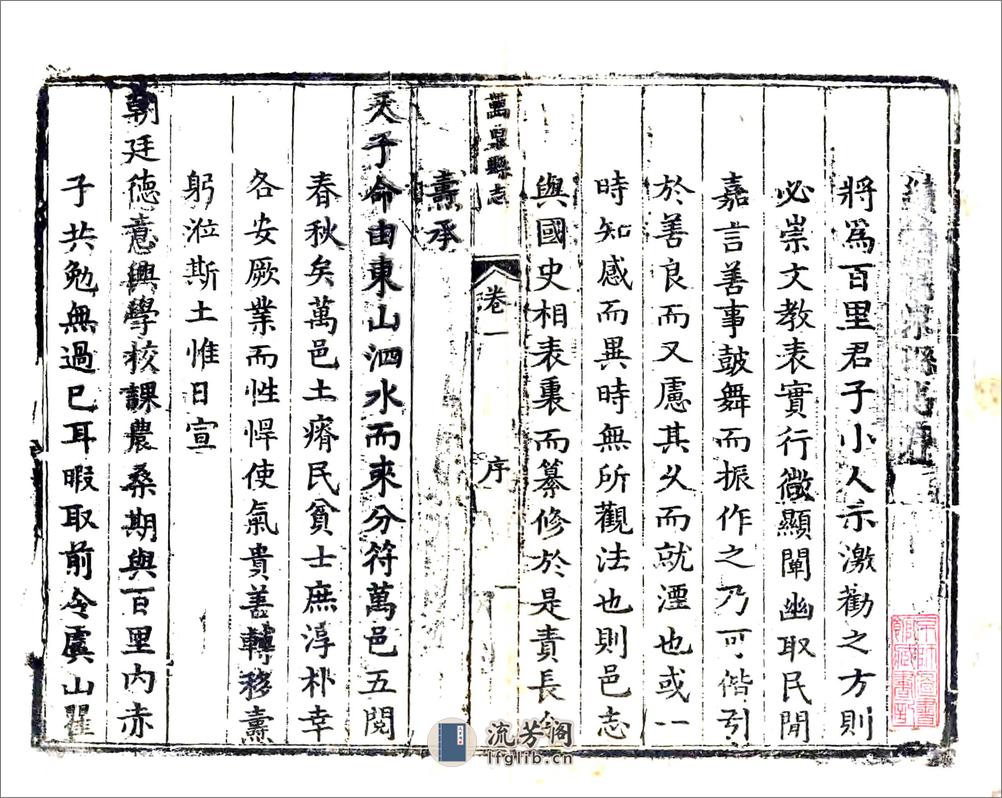 縣志序
將爲百里君子小人示激勸之方則
必崇文教表實行微顯闡幽取民間
嘉言善事鼓舞而振作之乃可偕引
於善良而又慮其久而就湮也或一
時知感而異時無所觀法也則邑志
與國史相表裏而纂修於是責長
萬泉縣志
卷一
序
一
燾承
天子命由東山泗水而來分符萬邑五閱
春秋矣萬邑土瘠民貧士庶淳朴幸
各安厥業而性悍使氣貴善轉移燾
躬涖斯土惟日宣
朝廷德意興學校課農桑期與百里內赤
子共勉無過已耳暇取前令虞山瞿
京師圖書館藏書記
流芳阁
lfglib.cn